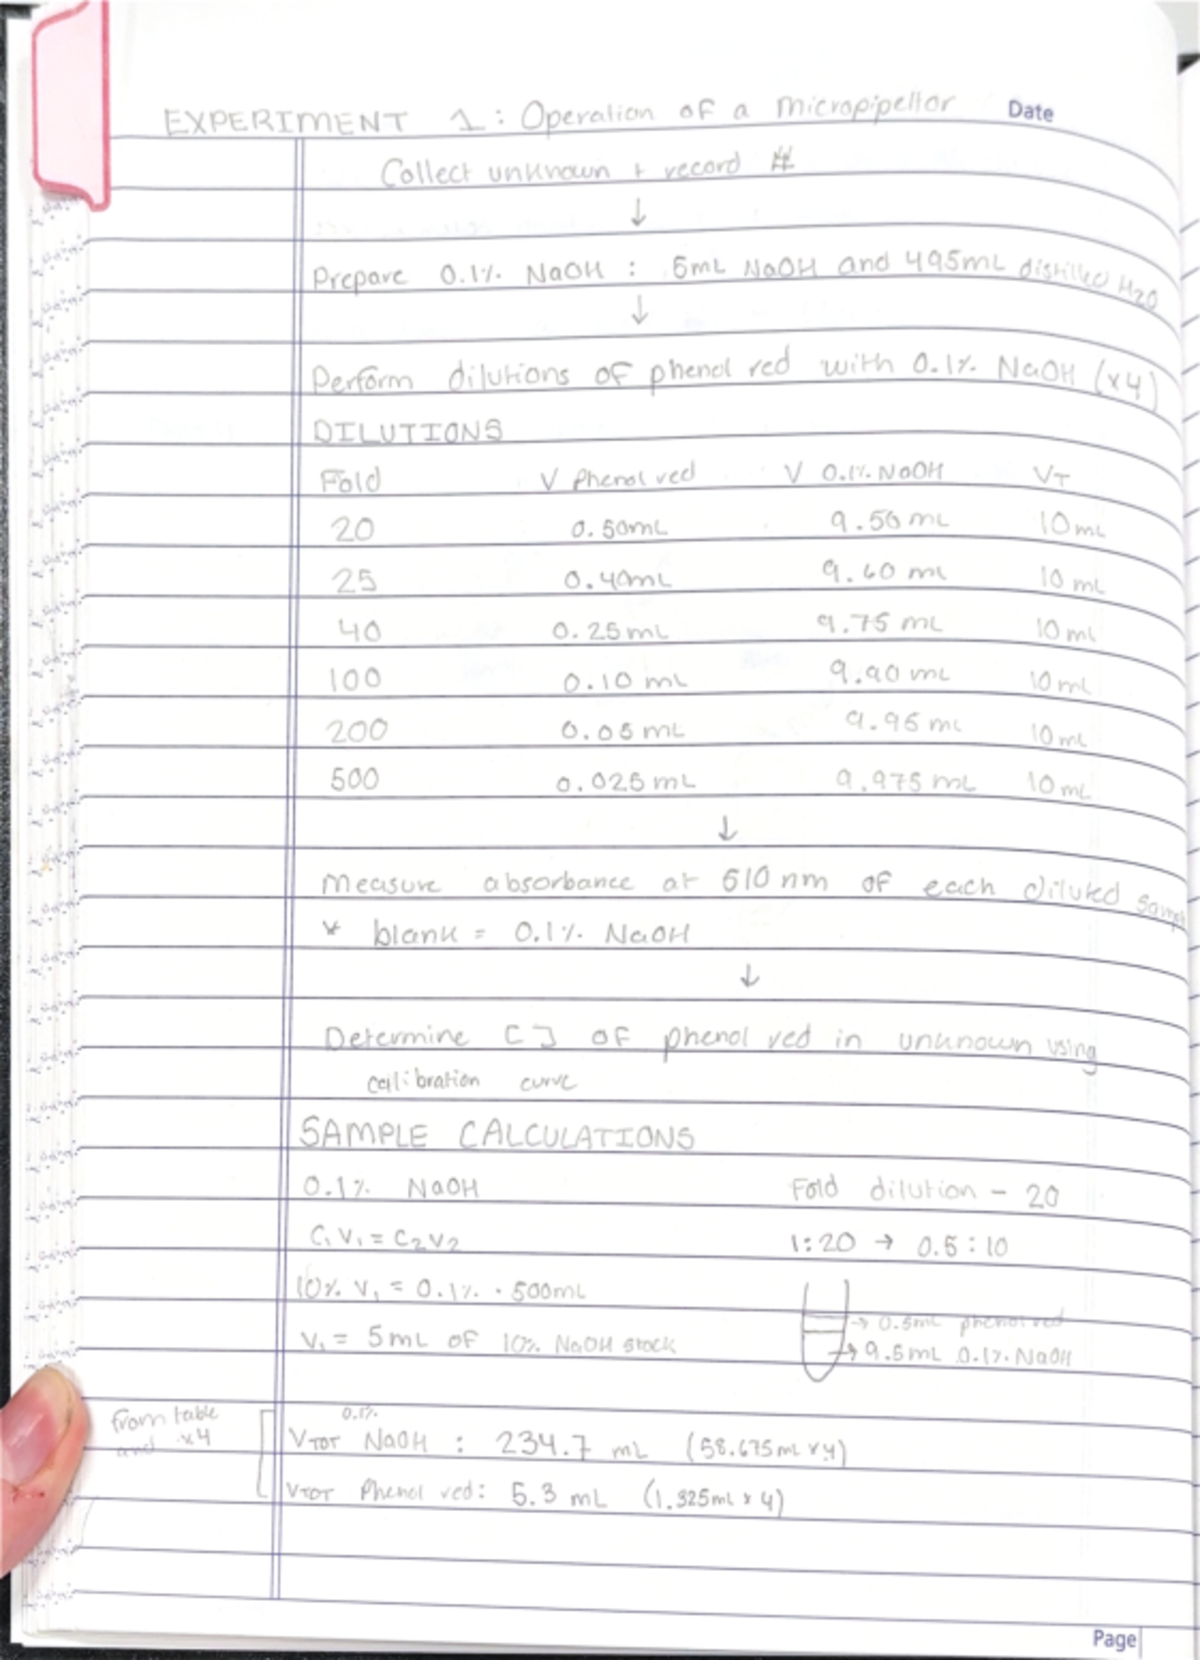 EXPERIMENT 1: Operation of a micropipettor Date
Collect unknown + record #
↓
Prepare 0.1% NaOH : 5mL NaOH and 495mL distilled H2O
↓
Perform dilutions of phenol red with 0.1% NaOH (x4)
DILUTIONS
Fold V Phenol red V 0.1% NaOH VT
20 0.50mL 9.50 mL 10 mL
25 0.40mL 9.60 mL 10 mL
40 0.25mL 9.75 mL 10 mL
100 0.10 mL 9.90 mL 10 mL
200 0.05 mL 9.95 mL 10 mL
500 0.025 mL 9.975 mL 10 mL
↓
Measure absorbance at 510 nm of each diluted
* blank = 0.1% NaOH
↓
Determine [ ] of phenol red in unknown using
calibration curve
SAMPLE CALCULATIONS
0.1% NaOH Fold dilution - 20
C1V1 = C2V2 1:20 → 0.5 : 10
10% V1 = 0.1% · 500mL
→ 0.5mL phenol red
V1 = 5mL of 10% NaOH stock → 9.5mL 0.1% NaOH
from table and x4
VTOT 0.1% NaOH : 234.7 mL (58.675mL x 4)
VTOT Phenol red : 5.3 mL (1.325mL x 4)
Page